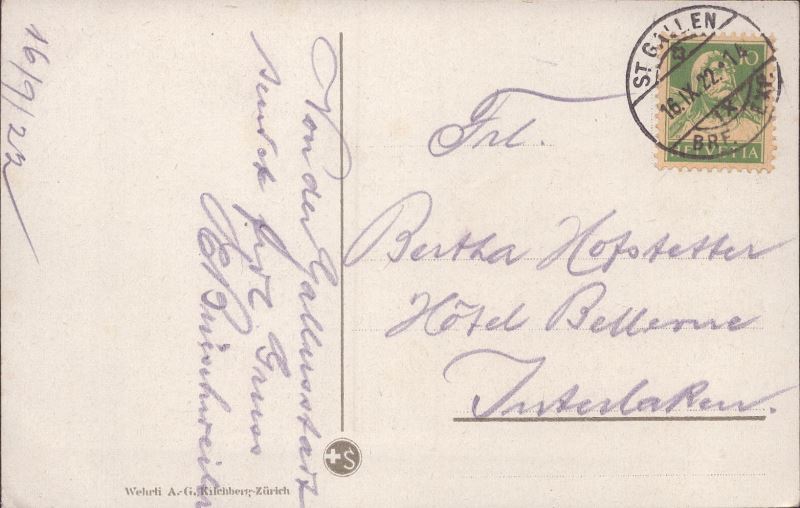 16/9/22
Von der Gallusstadt
sendet frdl. Gruss
Frl.
Bertha Hofstetter
Hôtel Bellevue
Interlaken.
ST. GALLEN
16.IX.22.-14
IX
HELVETIA
Wehrli A.-G., Kilchberg-Zürich
+S